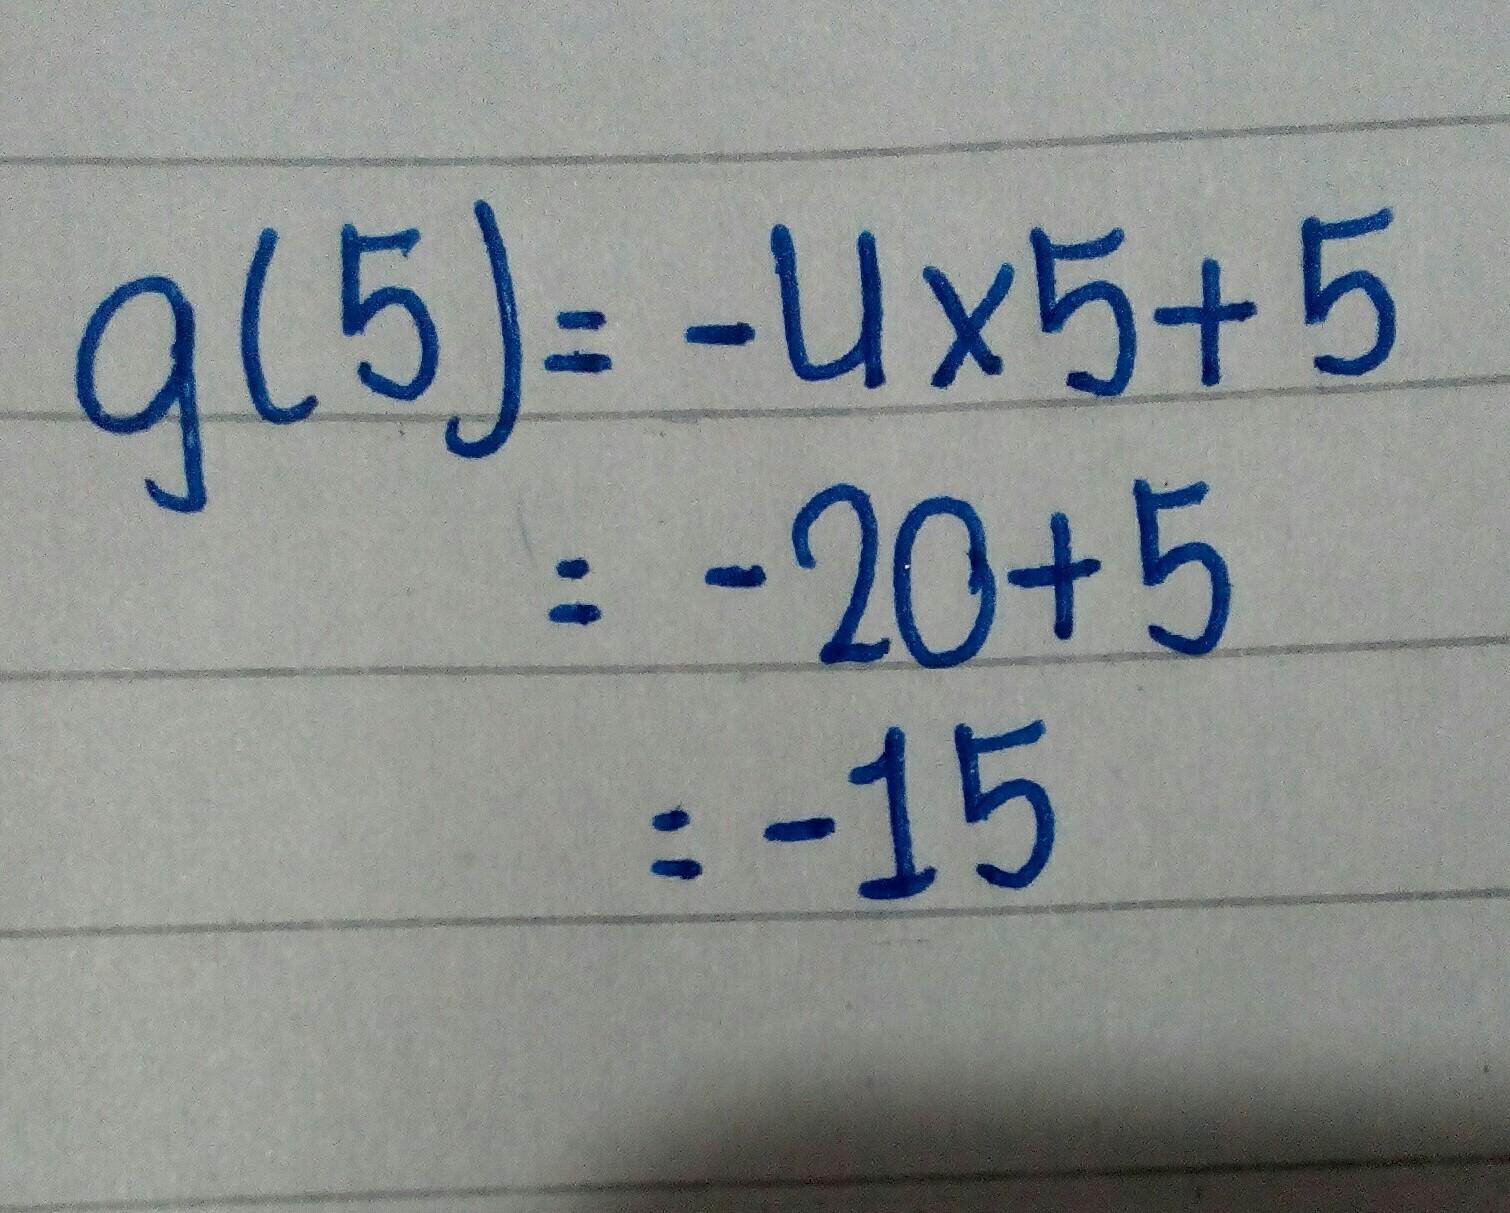 g(5)= -4x5+5
= -20+5
= -15